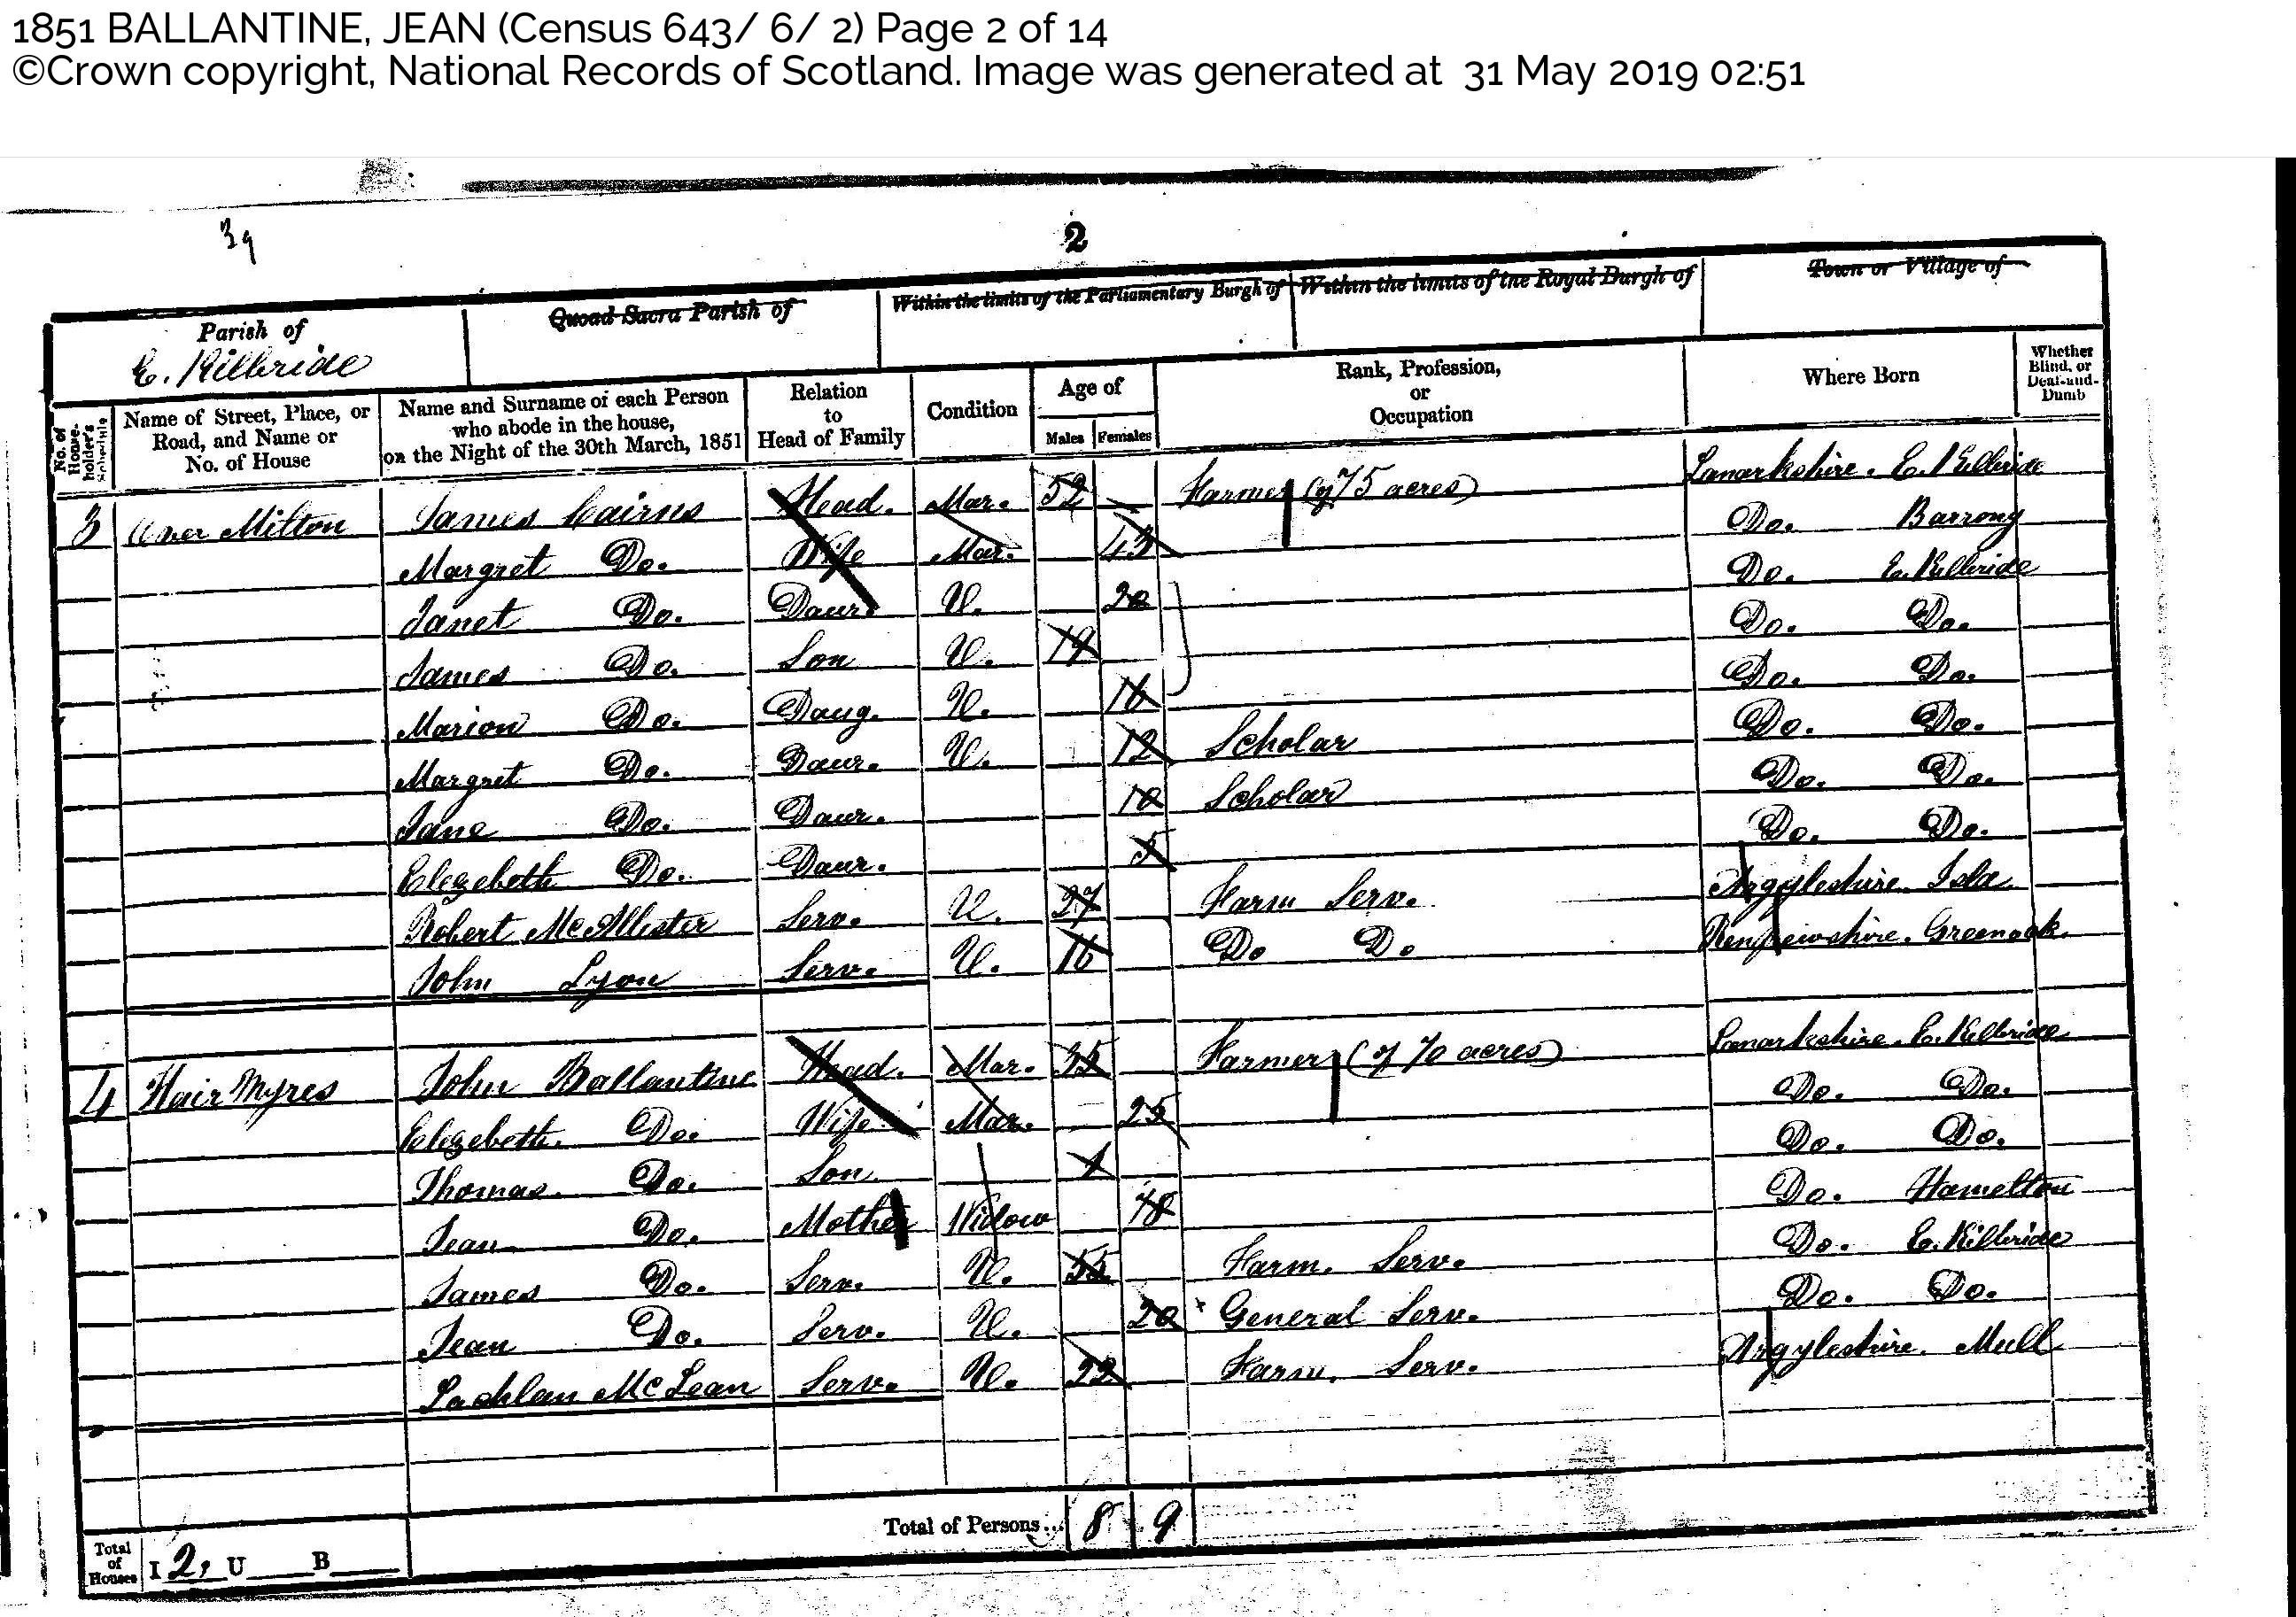 1851 BALLANTINE, JEAN (Census 643/ 6/ 2) Page 2 of 14
©Crown copyright, National Records of Scotland. Image was generated at 31 May 2019 02:51
39
2
Parish of Quoad Sacra Parish of Within the limits of the Parliamentary Burgh of Within the limits of the Royal Burgh of Town or Village of
E. Kilbride
No. of House-holder's Schedule Name of Street, Place, or Road, and Name or No. of House Name and Surname of each Person who abode in the house, on the Night of the 30th March, 1851 Relation to Head of Family Condition Age of Males Females Rank, Profession, or Occupation Where Born Whether Blind, or Deaf-and-Dumb
3 Over Milton James Cairns Head. Mar. 52 Farmer (of 75 acres) Lanarkshire. E. Kilbride
Margret Do. Wife Mar. 43 Do. Barrony
Janet Do. Daur. U. 20 Do. E. Kilbride
James Do. Son U. Do. Do.
Marion Do. Daug. U. 16 Do. Do.
Margret Do. Daur. U. 12 Scholar Do. Do.
Jane Do. Daur. 10 Scholar Do. Do.
Elezebeth Do. Daur. 5 Do. Do.
Robert McAllister Serv. U. 27 Farm Serv. Argyleshire. Isla
John Lyon Serv. U. 16 Do Do Renfrewshire. Greenoak
4 Hair Myres John Ballantine Head. Mar. 35 Farmer (of 70 acres) Lanarkshire. E. Kilbride
Elezebeth. Do. Wife Mar. 25 Do. Do.
Thomas. Do. Son 1 Do. Do.
Jean Do. Mother Widow 78 Do. Hamelton
James Do. Serv. U. Farm. Serv. Do. E. Kilbride
Jean Do. Serv. U. 20 General Serv. Do. Do.
Lachlan McLean Serv. U. 22 Farm. Serv. Argyleshire. Mull
Total of Persons... 8 9
Total of Houses I 2, U B